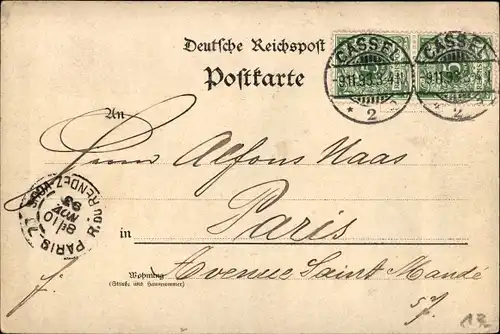 Deutsche Reichspost
Postkarte
CASSEL
9.11.98.3-4N
* 2
CASSEL
2
5
An
Herrn Alfons Haas
Paris
in
Wohnung
(Straße und Hausnummer)
Avenue Saint Mandé
57.
PARIS 71
R. DU RENDEZ-VOUS
NOV
98
13